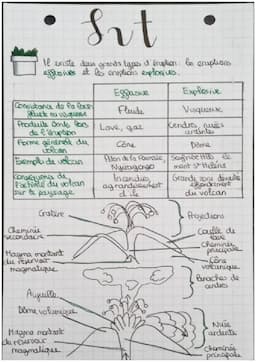 Svt
Il existe deux grands types d'éruption: les éruptions
effusives et les éruptions explosives.
Effusive Explosive
Consistance de la lave fluide ou visqueuse
Fluide
Visqueuse
Produits émis lors de l'éruption
Lave, gaz
Cendres, nuées ardentes
Forme générale du volcan
Cône
Dôme
Exemple de volcan
Piton de la Fournaise, Nyiragongo
mont St Helens
Conséquences de l'activité du volcan sur le paysage
Incendies, agrandissement d'île
Grands zones détruites effondrement du volcan
Cratère
Projections
Cheminée secondaire
Coulée de lave
Cheminée principale
Magma montant du réservoir magmatique
Cône volcanique
Panaches de cendres
Aiguille
Dôme volcanique
Magma montant du réservoir magmatique
Nuée ardente
Cheminée principale